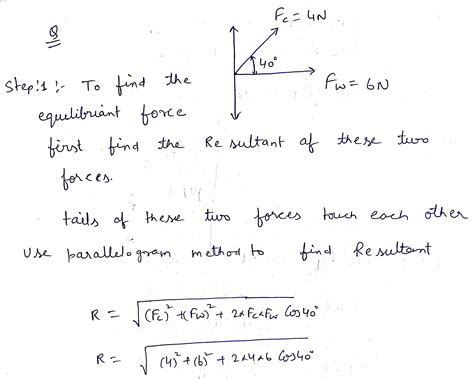 Q
F_c = 4N
40°
F_w = 6N
Step:1 :- To find the
equilibriant force
first find the Resultant of these two
forces.
tails of these two forces touch each other
Use parallelogram method to find Resultant
R = √((F_c)² + (F_w)² + 2×F_c×F_w Cos40°)
R = √((4)² + (6)² + 2×4×6 Cos40°)